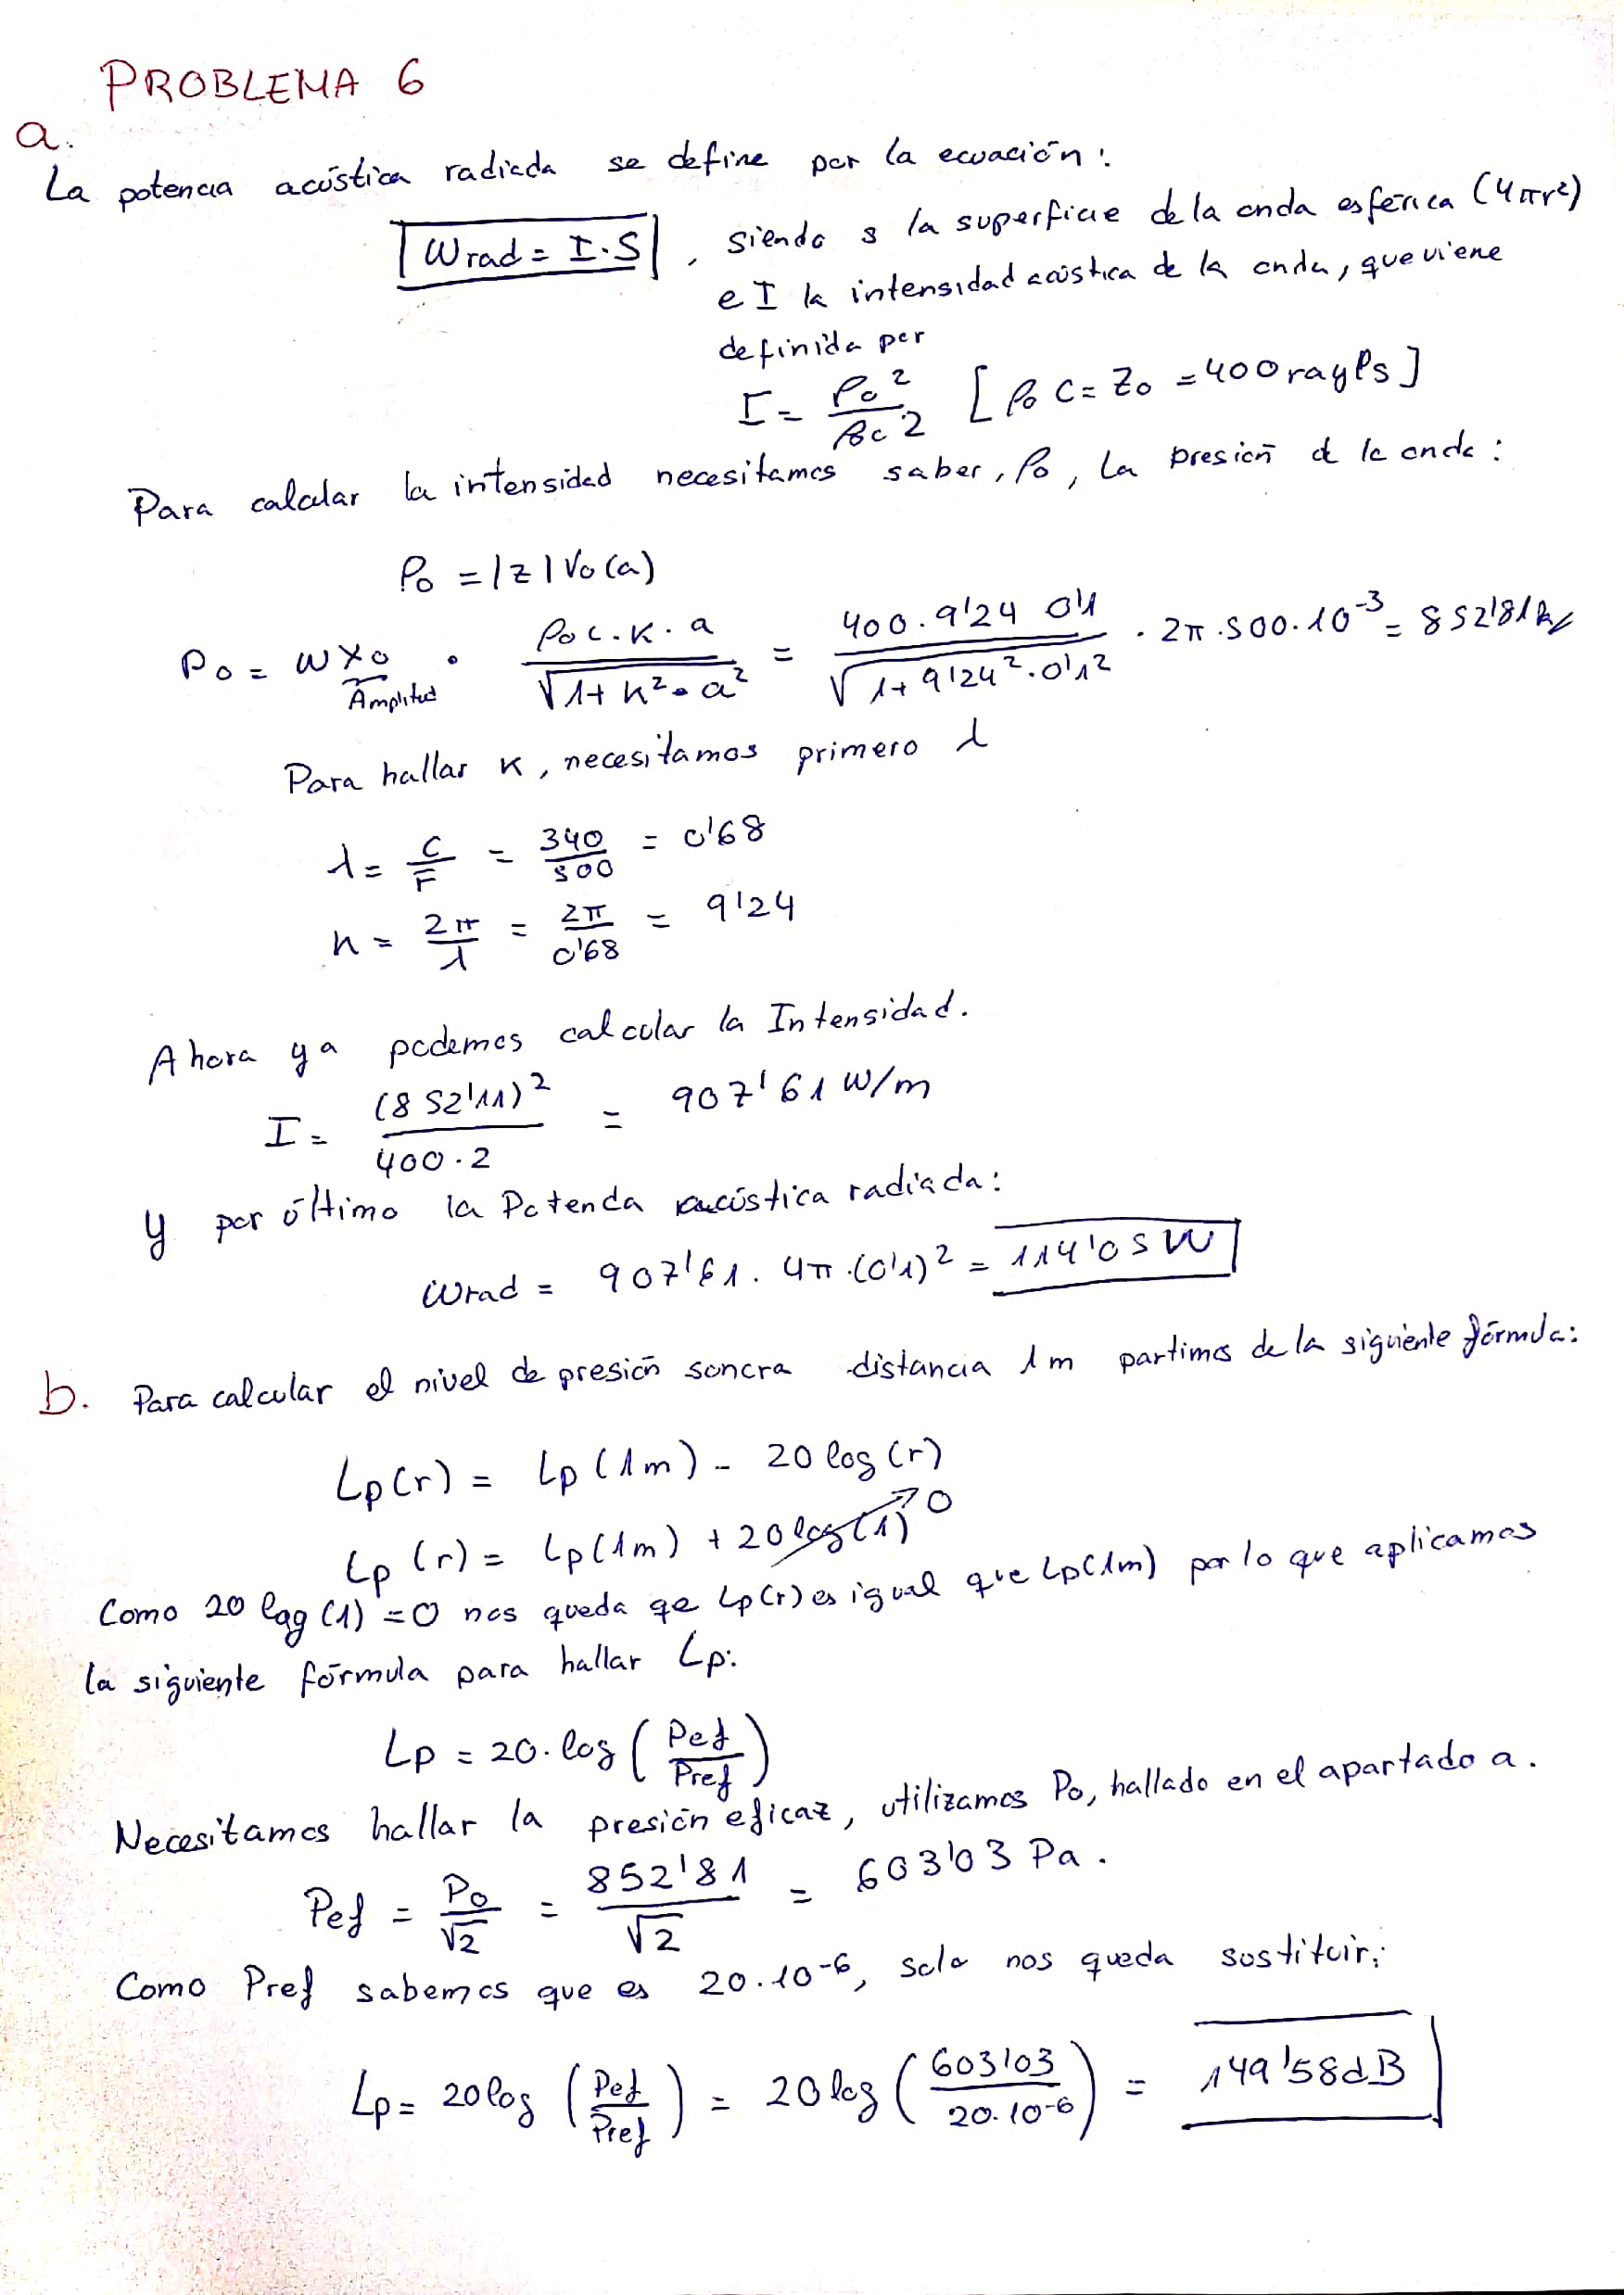 PROBLEMA 6
a.
La potencia acústica radiada se define por la ecuación:
Wrad = I·S , siendo s la superficie de la onda esférica (4πr²)
e I la intensidad acústica de la onda, que viene
definida por
I = Po² / ρoc 2 [ρo c = Zo = 400 rayls]
Para calcular la intensidad necesitamos saber, Po, la presión de la onda:
Po = |z| Vo(a)
Po = ω Xo · ρo c·k·a / √1+k²·a² = 400·9'24 0'1 / √1+9'24²·0'1² · 2π·500·10⁻³ = 852'81
Amplitud
Para hallar K, necesitamos primero λ
λ = c/F = 340/500 = 0'68
k = 2π/λ = 2π/0'68 = 9'24
Ahora ya podemos calcular la Intensidad.
I = (852'11)² / 400·2 = 907'61 W/m
Y por último la Potencia acústica radiada:
Wrad = 907'61 · 4π·(0'1)² = 114'05 W
b. Para calcular el nivel de presión sonora distancia 1m partimos de la siguiente fórmula:
Lp(r) = Lp(1m) - 20 log(r)
Lp(r) = Lp(1m) + 20 log(1) 0
Como 20 log(1) = 0 nos queda qe Lp(r) es igual que Lp(1m) por lo que aplicamos
la siguiente fórmula para hallar Lp:
Lp = 20·log (Pef/Pref)
Necesitamos hallar la presión eficaz, utilizamos Po, hallado en el apartado a.
Pef = Po/√2 = 852'81/√2 = 603'03 Pa.
Como Pref sabemos que es 20·10⁻⁶, solo nos queda sustituir:
Lp = 20 log (Pef/Pref) = 20 log (603'03/20·10⁻⁶) = 149'58 dB